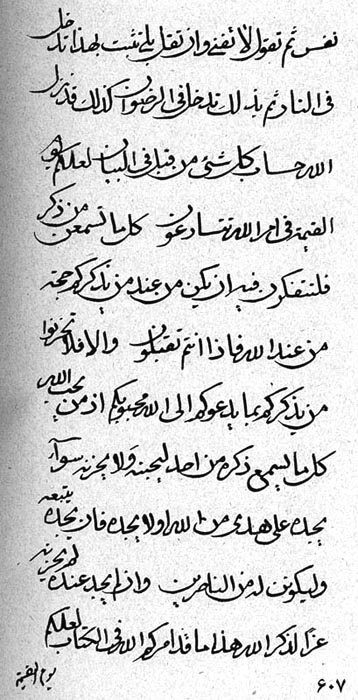 نفس ثم تقول لا تفنى وان تقل بلى تثبت بهذا تدخل
فى النار ثم بذلك تدخل فى الرضوان كذلك قد نزل
الله حساب كل شئ من قبل فى البيان لعلكم يوم
القيمة فى امر الله تتسارعون كل ما تسمعن من ذكر
فلتتفكرن فيه ان يكن من عند من يذكركم حجة
من عند الله فاذا انتم تقبلون والا فلا تحزنوا
من يذكركم بما يدعوكم الى الله محبوبكم اذ من يحب الله
كل ما يسمع ذكره من احد ليحبنه ولا يحزنه سواء
يجده على هدى من الله او لا يجده فان يجده يتبعه
وليكونن له من الناصرين وان لم يجد عنده لم يحزنه
عزا لذكر الله هذا ما قد امركم الله فى الكتاب لعلكم
يوم القيمة
٦٠٧